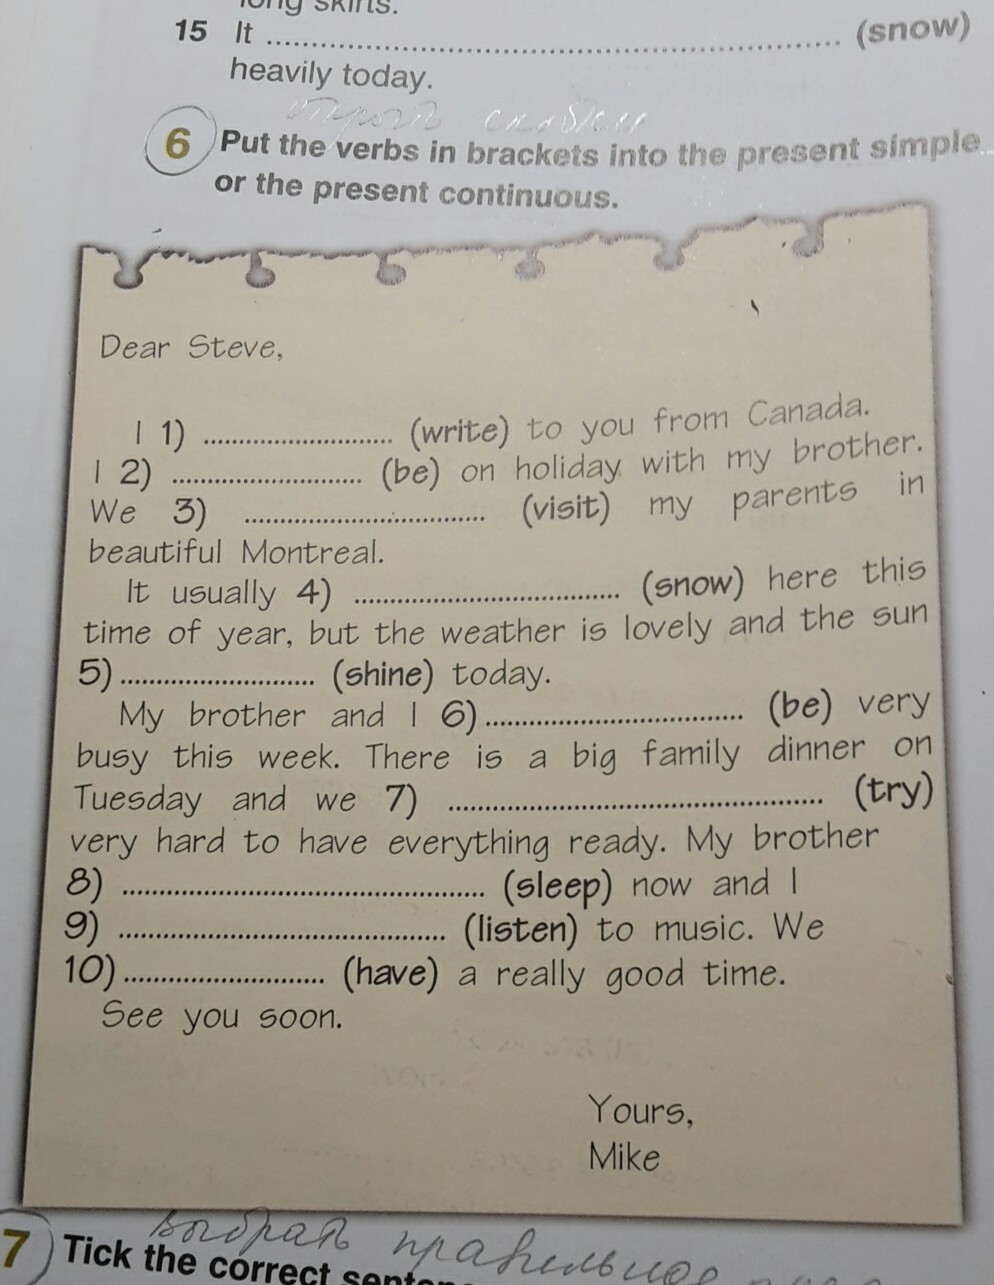 long skirts.
15 It ........................................ (snow)
heavily today.
6 Put the verbs in brackets into the present simple
or the present continuous.
Dear Steve,
I 1) .......................... (write) to you from Canada.
I 2) .......................... (be) on holiday with my brother.
We 3) ................................. (visit) my parents in
beautiful Montreal.
It usually 4) .................................... (snow) here this
time of year, but the weather is lovely and the sun
5) .......................... (shine) today.
My brother and I 6) ................................... (be) very
busy this week. There is a big family dinner on
Tuesday and we 7) .................................................. (try)
very hard to have everything ready. My brother
8) ................................................. (sleep) now and I
9) ............................................. (listen) to music. We
10) ........................... (have) a really good time.
See you soon.
Yours,
Mike
правильное
7 Tick the correct